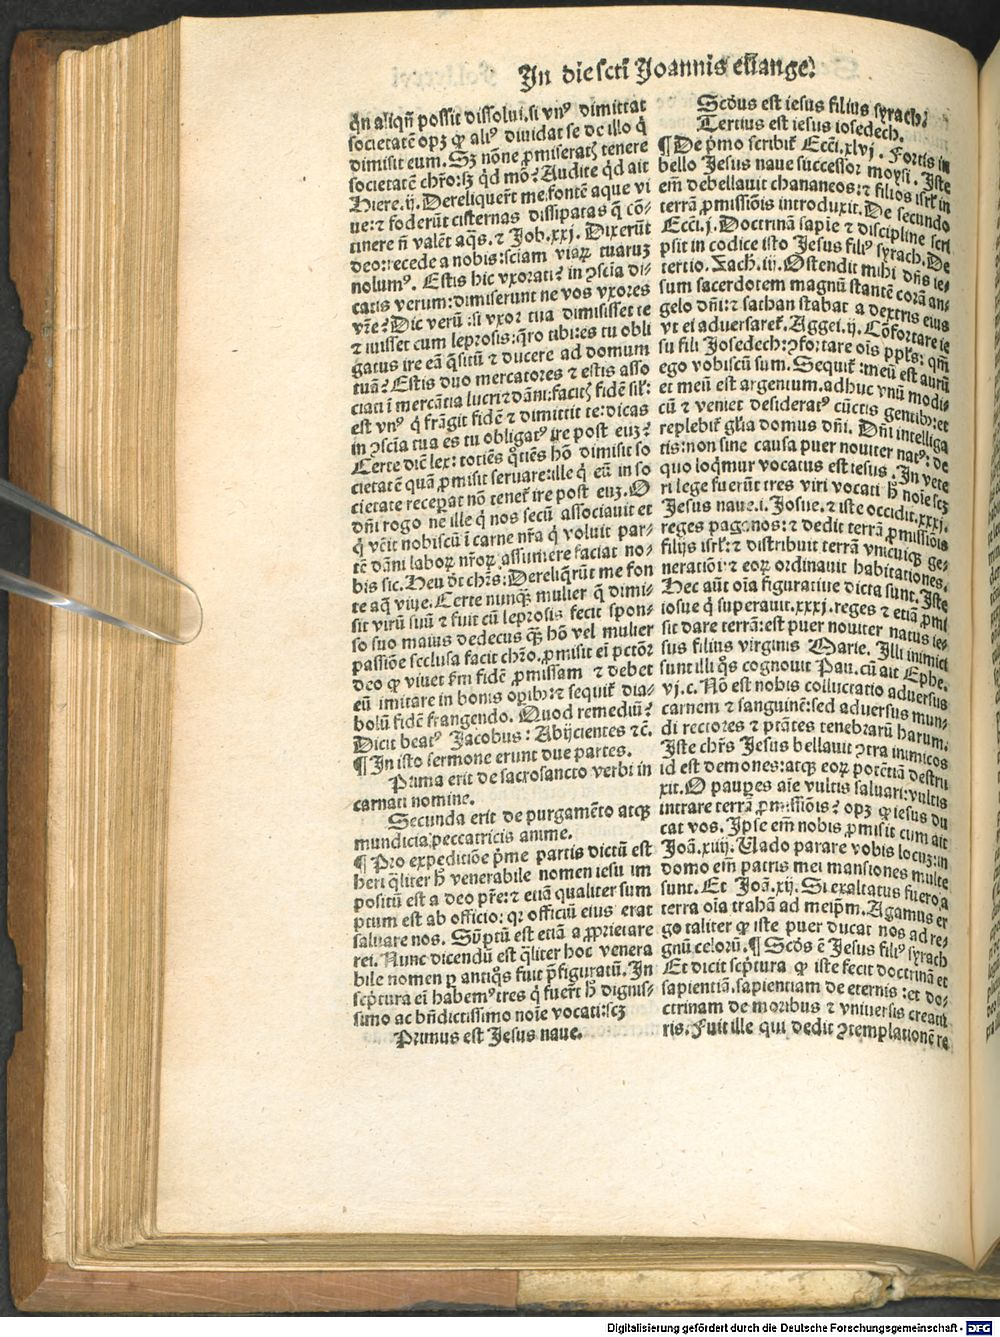 In die sctī Joannis euange.
qn̄ aliqn̄ possit dissolui.si vn⁹ dimittat
societatē opꝫ ꝙ ali⁹ diuidat se de illo q̇
dimisit eum. Sꝫ nōne ꝓmiserat; tenere
societatē chr̄o:sꝫ q̇d mō? Audite q̇d ait
Hiere.ij. Dereliquer̄t me.fontē aque vi
ue:⁊ foderūt cisternas dissipatas q̄ cō⸗
tinere n̄ valēt aq̄s.⁊ Job.xxj. Dixerūt
deo:recede a nobis:sciam viaꝝ tuaruꝫ
nolum⁹. Estis hic vxorati? in ↄscīa di⸗
catis verum:dimiserunt ne vos vxores
vr̄e? Dic verū :si vxor tua dimisisset te
⁊ iuisset cum leprosis:q̄ro tibi:es tu obli
gatus ire eā q̄sitū ⁊ ducere ad domum
tuā? Estis duo mercatores ⁊ estis asso
ciati ī mercātia lucri ⁊ dāni:facitꝭ fidē sil̄:
est vn⁹ q̇ frāgit fidē ⁊ dimittit te:dicas
in ↄscīa tua es tu obligat⁹ ire post euꝫ?
Certe dicē lex: totiēs q̄tiēs hō dimisit so
cietatē quā ꝓmisit seruare:ille q̇ eū in so
cietate recepat nō tenet̄ ire post euꝫ.O
dn̄i rogo ne ille q̇ nos secū associauit et
q̇ vēit nobiscū ī carne nr̄a q̇ voluit par⸗
tē dāni laboꝝ nr̄oꝝ assumere faciat no⸗
bis sic.Heu dt̄ chr̄s:Dereliq̄rūt me fon
te aq̄ viue.Certe nunqꝫ mulier q̄ dimi⸗
sit virū suū ⁊ fuit cū leprosis fecit spon⸗
so suo maius dedecus qꝫ hō vel mulier
passiōe seclusa facit chr̄o.ꝓmisit ei pctōr
deo ꝙ viuet ẜm fidē ꝓmissam ⁊ debet
eū imitare in bonis opibꝫ:⁊ sequit̄ dia⸗
bolū fidē frangendo. Quod remediū?
Dicit beat⁹ Jacobus: Abijcientes ⁊c̄.
¶ In isto sermone erunt due partes.
Prima erit de sacrosancto verbi in
carnati nomine.
Secunda erit de purgamēto atqꝫ
mundicia peccatricis anime.
¶ Pro expeditiōe pr̄me partis dictū est
heri q̄liter h̄ venerabile nomen iesu im
positū est a deo pr̄e:⁊ etiā qualiter sum
ptum est ab officio: qꝛ officiū eius erat
saluare nos. Sūptū est etiā a ꝓprietate
rei. Nunc dicendū est q̄liter hoc venera
bile nomen ꝑ antiq̄s fuit p̄figuratū.In
scp̄tura ei habem⁹ tres q̇ fuer̄t h̄ dignis⸗
simo ac bn̄dictissimo noīe vocati:scꝫ
Primus est Jesus naue.
Scd̄us est iesus filius syrach.
Tertius est iesus iosedech.
¶ De p̄mo scribit̄ Ecc̄i.xlvj. Fortis in
bello Jesus naue successor moysi. Iste
em̄ debellauit chananeos:⁊ filios isrl̄ in
terrā ꝓmissiōis introduxit.De secundo
Ecc̄i.j.Doctrinā sapīe ⁊ discipline scri
psit in codice isto Jesus fili⁹ syrach.De
tertio.Zach.iij.Ostendit mihi dn̄s ie⸗
sum sacerdotem magnū stantē corā an⸗
gelo dn̄i:⁊ sathan stabat a dextris eius
vt ei aduersaret̄.Aggei.ij.Cōfortare ie
su fili Josedech:ↄfortare oīs ppl̄s: qm̄
ego vobiscū sum. Sequit̄ :meū est aurū
et meū est argentum.adhuc vnū modi⸗
cū ⁊ veniet desiderat⁹ cūctis gentibꝫ:et
replebit̄ gl̄ia domus dn̄i. Dn̄i intelliga
tis:non sine causa puer nouiter nat⁹: de
quo loq̄mur vocatus est iesus .In vete
ri lege fuerūt tres viri vocati h̄ noīe scꝫ
Jesus naue.i. Josue.⁊ iste occidit.xxxj.
reges paganos:⁊ dedit terrā ꝓmissiōis
filijs isrl̄:⁊ distribuit terrā vnicuiqꝫ ge⸗
neratiōi:⁊ eoꝝ ordinauit habitationes.
Hec aūt oīa figuratiue dicta sunt. Iste
iosue q̇ superauit.xxxj.reges ⁊ etiā ꝓmi
sit dare terrā:est puer nouiter natus ie⸗
sus filius virginis Marie. Illi inimici
sunt illi q̄s cognouit Pau.cū ait Ephe.
vj.c. Nō est nobis colluctatio aduersus
carnem ⁊ sanguinē:sed aduersus mun⸗
di rectores ⁊ ptātes tenebrarū harum.
Iste chr̄s Jesus bellauit ↄtra inimicos
id est demones:atqꝫ eoꝝ potētiā destru
xit.O paupes aīe vultis saluari:vultis
intrare terrā ꝓmissiōis? opꝫ ꝙ iesus du
cat vos. Ipse em̄ nobis ꝓmisit cum ait
Joā.xiiij. Vado parare vobis locuꝫ:in
domo em̄ patris mei mansiones multe
sunt. Et Joā.xij. Si exaltatus fuero a
terra oīa trahā ad meipm̄.Agamus er
go taliter ꝙ iste puer ducat nos ad re⸗
gnū celorū.¶ Scd̄s ē Jesus fili⁹ syrach
Et dicit scp̄tura ꝙ iste fecit doctrinā et
sapientiā.sapientiam de eternis :et do⸗
ctrinam de moribus ⁊ vniuersis creatu
ris.Fuit ille qui dedit ↄtemplationē re
Digitalisierung gefördert durch die Deutsche Forschungsgemeinschaft - DFG